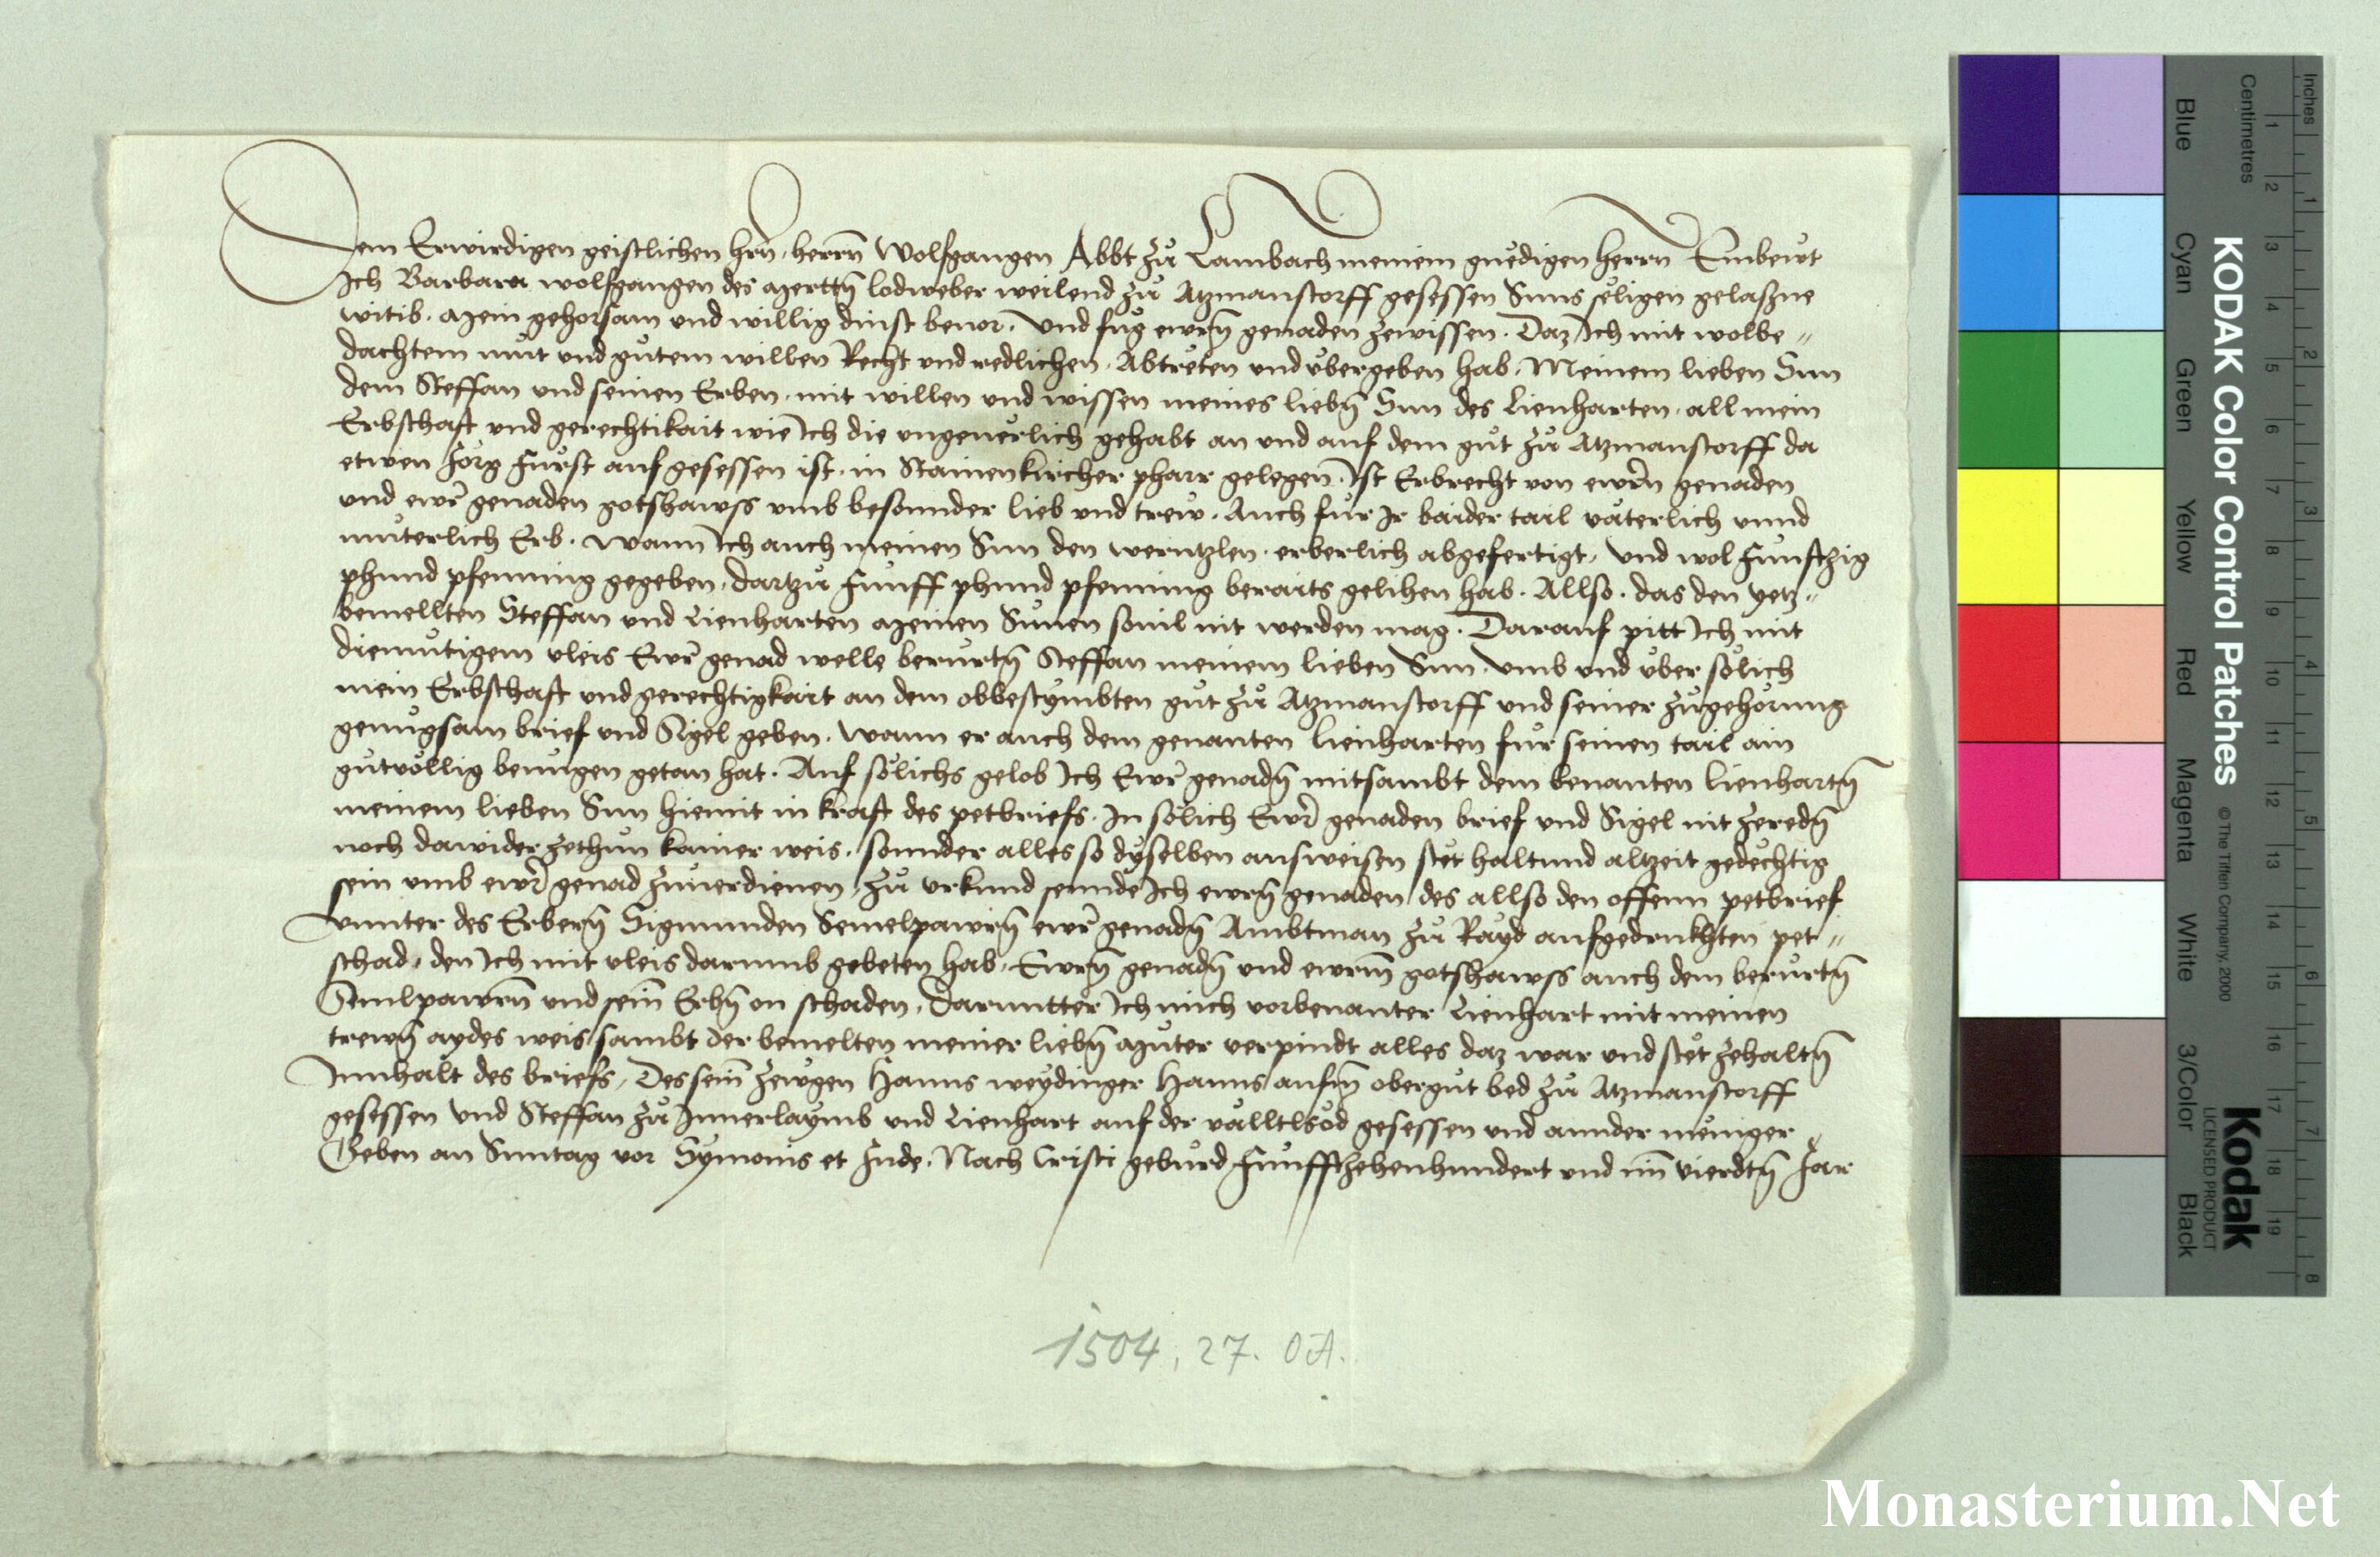 Dem Erwirdigen geistlichen hrn̄, herrn̄ Wolfgangen Abbt zů Lambach meinem gnědigen herrn Embeut
Ich Barbara wolfgangen des Merttn̄ lodweber weilend zů Atzmanstorff gesessen Suns sěligen gelaszne
witib. Mein gehorsam und willig dinst beuor. Und fůg ewrn̄ genaden zewissen. Daz Ich mit wolbe„
dachtem můt und gůtem willen Recht und redlichen. Abtreten und ůbergeben hab. Meinem lieben Sun
dem Steffan und seinen Erben. mit willen und wissen meines liebn̄ Sun des Lienharten. all mein
Erbschaft und gerechtikait wie Ich die ungeuerlich gehabt an und auf dem gůt zů Atzmanstorff da
etwen Jörg Fůrst auf gesessen ist. in Stainenkircher pharr gelegen. Ist Erbrecht von ewrn̄ genaden
und ewr̄ genaden gotshawss umb besonnder lieb und trew. Auch fůr Ir baider tail väterlich unnd
můterlich Erb. wann Ich auch meinen Sun den werntzlen. erberlich abgefertigt. Und wol Funftzig
phund pfenning gegeben. dartzů Funff phund pfenning beraits gelihen hab. Allso. das den yetz„
bemellten Steffan und Lienharten Meinen Sůnen souil nit werden mag. Darauf pitt Ich mit
diemůtigem vleis Ewr̄ genad welle berůrtn̄ Steffan meinem lieben Sun. Umb und ůber sölich
mein Erbschaft und gerechtigkait an dem obbestymbten gůt zů Atzmanstorff und seiner zůgehörung
genugsam brief und Sigel geben. Wann er auch dem genanten Lienharten fůr seinen tail ain
gůtvöllig benůgen getan hat. Auf sölichs gelob Ich Ewr̄ genadn̄ mitsambt dem benanten Lienhartn̄
meinem lieben Sun hiemit in kraft des petbriefs. In sölich Ewr̄ genaden brief und Sigel nit zeredn̄
noch dawider zethůn kainer weis. sonnder alles so dyselben ausweisen stět halt und altzeit geděchtig
sein umb ewr̄ genad zůuerdienen. Zů urkund sennde Ich ewrn̄ genaden des allso den offenn petbrief
Unnter des Erbern̄ Sigmunden Semelpawrn̄ ewr̄ genadn̄ Ambtman zů Rayd aufgedrukhten pet„
schad. den Ich mit vleis darumb gebeten hab. Ewrn̄ genadn̄ und ewrm̄ gotshawss auch dem berůrtn̄
Semlpawrn̄ und sein̄ Erbn̄ on schaden. Darunntter Ich mich vorbenanter Lienhart mit meinen
trewn̄ aydes weis sambt der bemelten meiner liebn̄ Můter verpindt alles daz war und stět zehaltn̄
Innhalt des briefs. Des sein̄ zewgen Hanns weydinger Hanns aufm̄ obergůt bed zů Atzmanstorff
gesessen Und Steffan zů Innerlaymb und Lienhart auf der välltlsöd gesessen und annder meniger
Geben an Sunntag vor Symonis et Jude. Nach Cristi gebůrd Funfftzehenhundert und im̄ Vierdtn̄ Jar
1504, 27. Okt.
Inches
Centimetres
Blue
Cyan
Green
Yellow
Red
Magenta
White
3/Color
Black
KODAK Color Control Patches
© The Tiffen Company, 2000
Kodak
LICENSED PRODUCT
1 2 3 4 5 6 7 8 9 10 11 12 13 14 15 16 17 18 19
1 2 3 4 5 6 7 8
Monasterium.Net